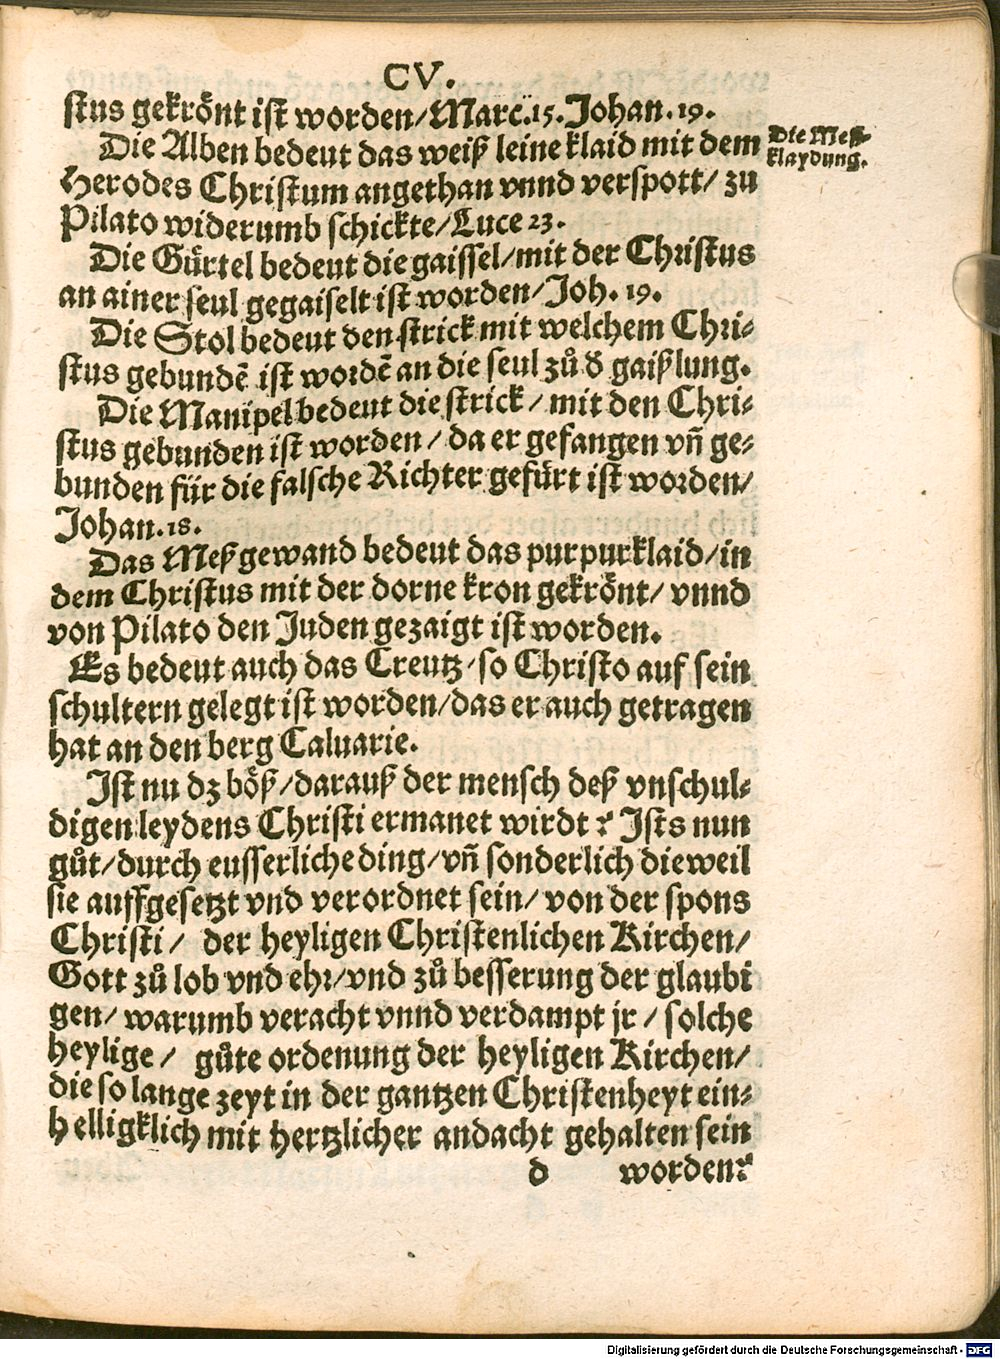 CV.
stus gekrönt ist worden/Marc.15.Johan.19.
Die Alben bedeut das weiß leine klaid mit dem
Die Meß-
klaydung.
Herodes Christum angethan vnnd verspott/ zu
Pilato widerumb schickte/Luce 23.
Die Gürtel bedeut die gaissel/mit der Christus
an ainer seul gegaiselt ist worden/Joh. 19.
Die Stol bedeut den strick mit welchem Chri-
stus gebundē ist wordē an die seul zů đ gaißlung.
Die Manipel bedeut die strick/ mit den Chri-
stus gebunden ist worden/ da er gefangen vñ ge-
bunden für die falsche Richter gefürt ist worden/
Johan.18.
Das Meßgewand bedeut das purpurklaid/in
dem Christus mit der dorne kron gekrönt/ vnnd
von Pilato den Juden gezaigt ist worden.
Es bedeut auch das Creutz/so Christo auf sein
schultern gelegt ist worden/das er auch getragen
hat an den berg Caluarie.
Ist nu dz böß/darauß der mensch deß vnschul-
digen leydens Christi ermanet wirdt? Ists nun
gůt/durch eusserliche ding/vñ sonderlich dieweil
sie auffgesetzt vnd verordnet sein/ von der spons
Christi/ der heyligen Christenlichen Kirchen/
Gott zů lob vnd ehr/vnd zů besserung der glaubi
gen/ warumb veracht vnnd verdampt jr/ solche
heylige/ gůte ordenung der heyligen Kirchen/
die so lange zeyt in der gantzen Christenheyt ein-
helligklich mit hertzlicher andacht gehalten sein
d worden?
Digitalisierung gefördert durch die Deutsche Forschungsgemeinschaft - DFG